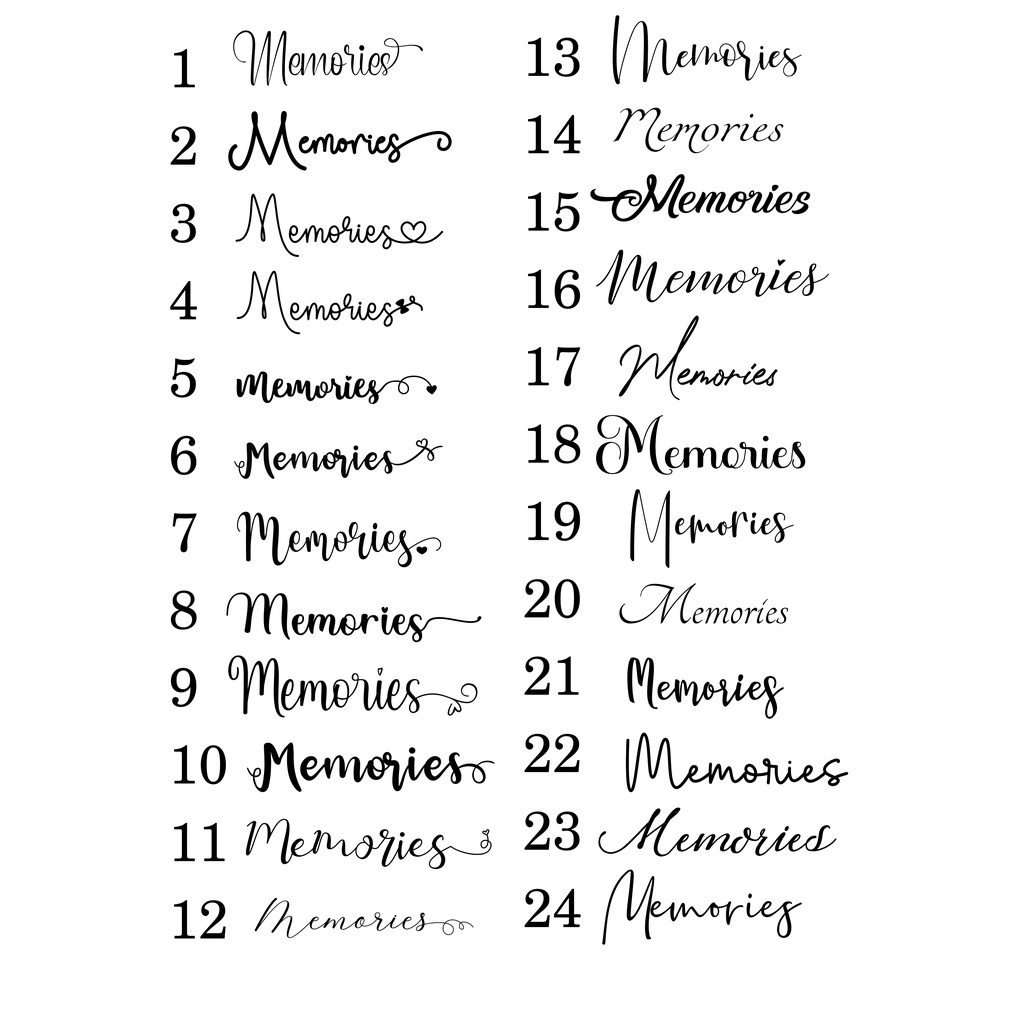 1 Memories
2 Memories
3 Memories
4 Memories
5 memories
6 Memories
7 Memories
8 Memories
9 Memories
10 Memories
11 Memories
12 Memories
13 Memories
14 Memories
15 Memories
16 Memories
17 Memories
18 Memories
19 Memories
20 Memories
21 Memories
22 Memories
23 Memories
24 Memories